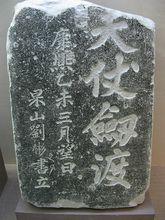 天仗劒渡
康熙乙未三月望日
果山劉彬書立